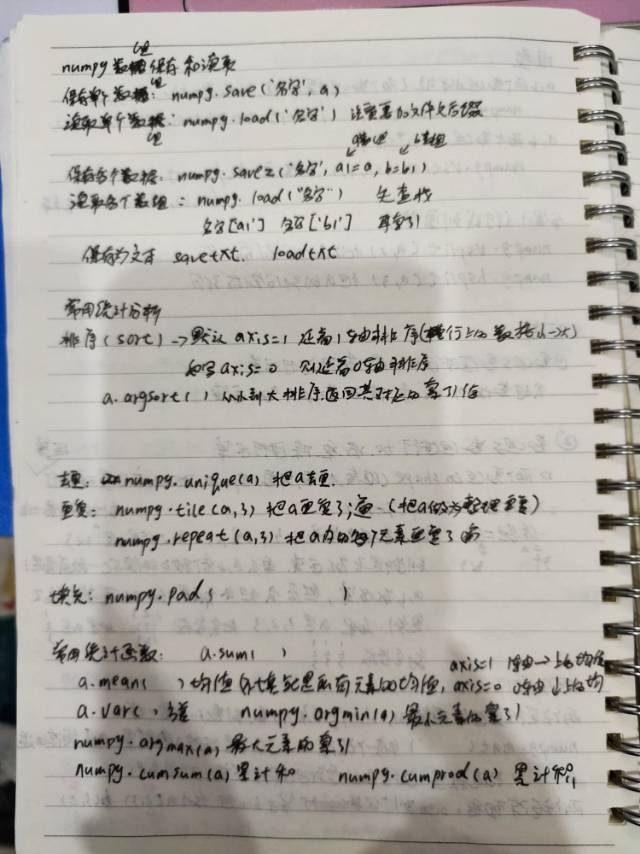 numpy 数组保存和读取
保存单个数组: numpy.save('名字', a)
读取单个数组: numpy.load('名字') 注意要加文件夹后缀
a数组 b数组
保存多个数组. numpy.savez('名字', a1=a, b=b1)
读取多个数组: numpy.load("名字") 先查找
名字[a1'] 名字['b1'] 再索引
保存为文本 savetxt. loadtxt
常用统计分析
排序(sort) → 默认 axis=1 沿着1轴排序(横行上的数据小→大)
如果axis=0 则沿着0轴排序
a.argsort( ) 从小到大排序返回其对应的索引值
去重: numpy.unique(a) 把a去重.
重复: numpy.tile(a,3) 把a重复了3遍 (把a做为整理重复)
numpy.repeat(a,3) 把a内的每个元素重复了3遍
填充: numpy.pad( )
常用统计函数: a.sum( )
axis=1 1轴→上的均值
a.mean( ) 均值 不填就是所有元素的均值, axis=0 0轴↓上的均
a.var( , 方差 numpy.argmin(a) 最小元素的索引
numpy.argmax(a) 最大元素的索引
numpy.cumsum(a) 累计和 numpy.cumprod(a) 累计积